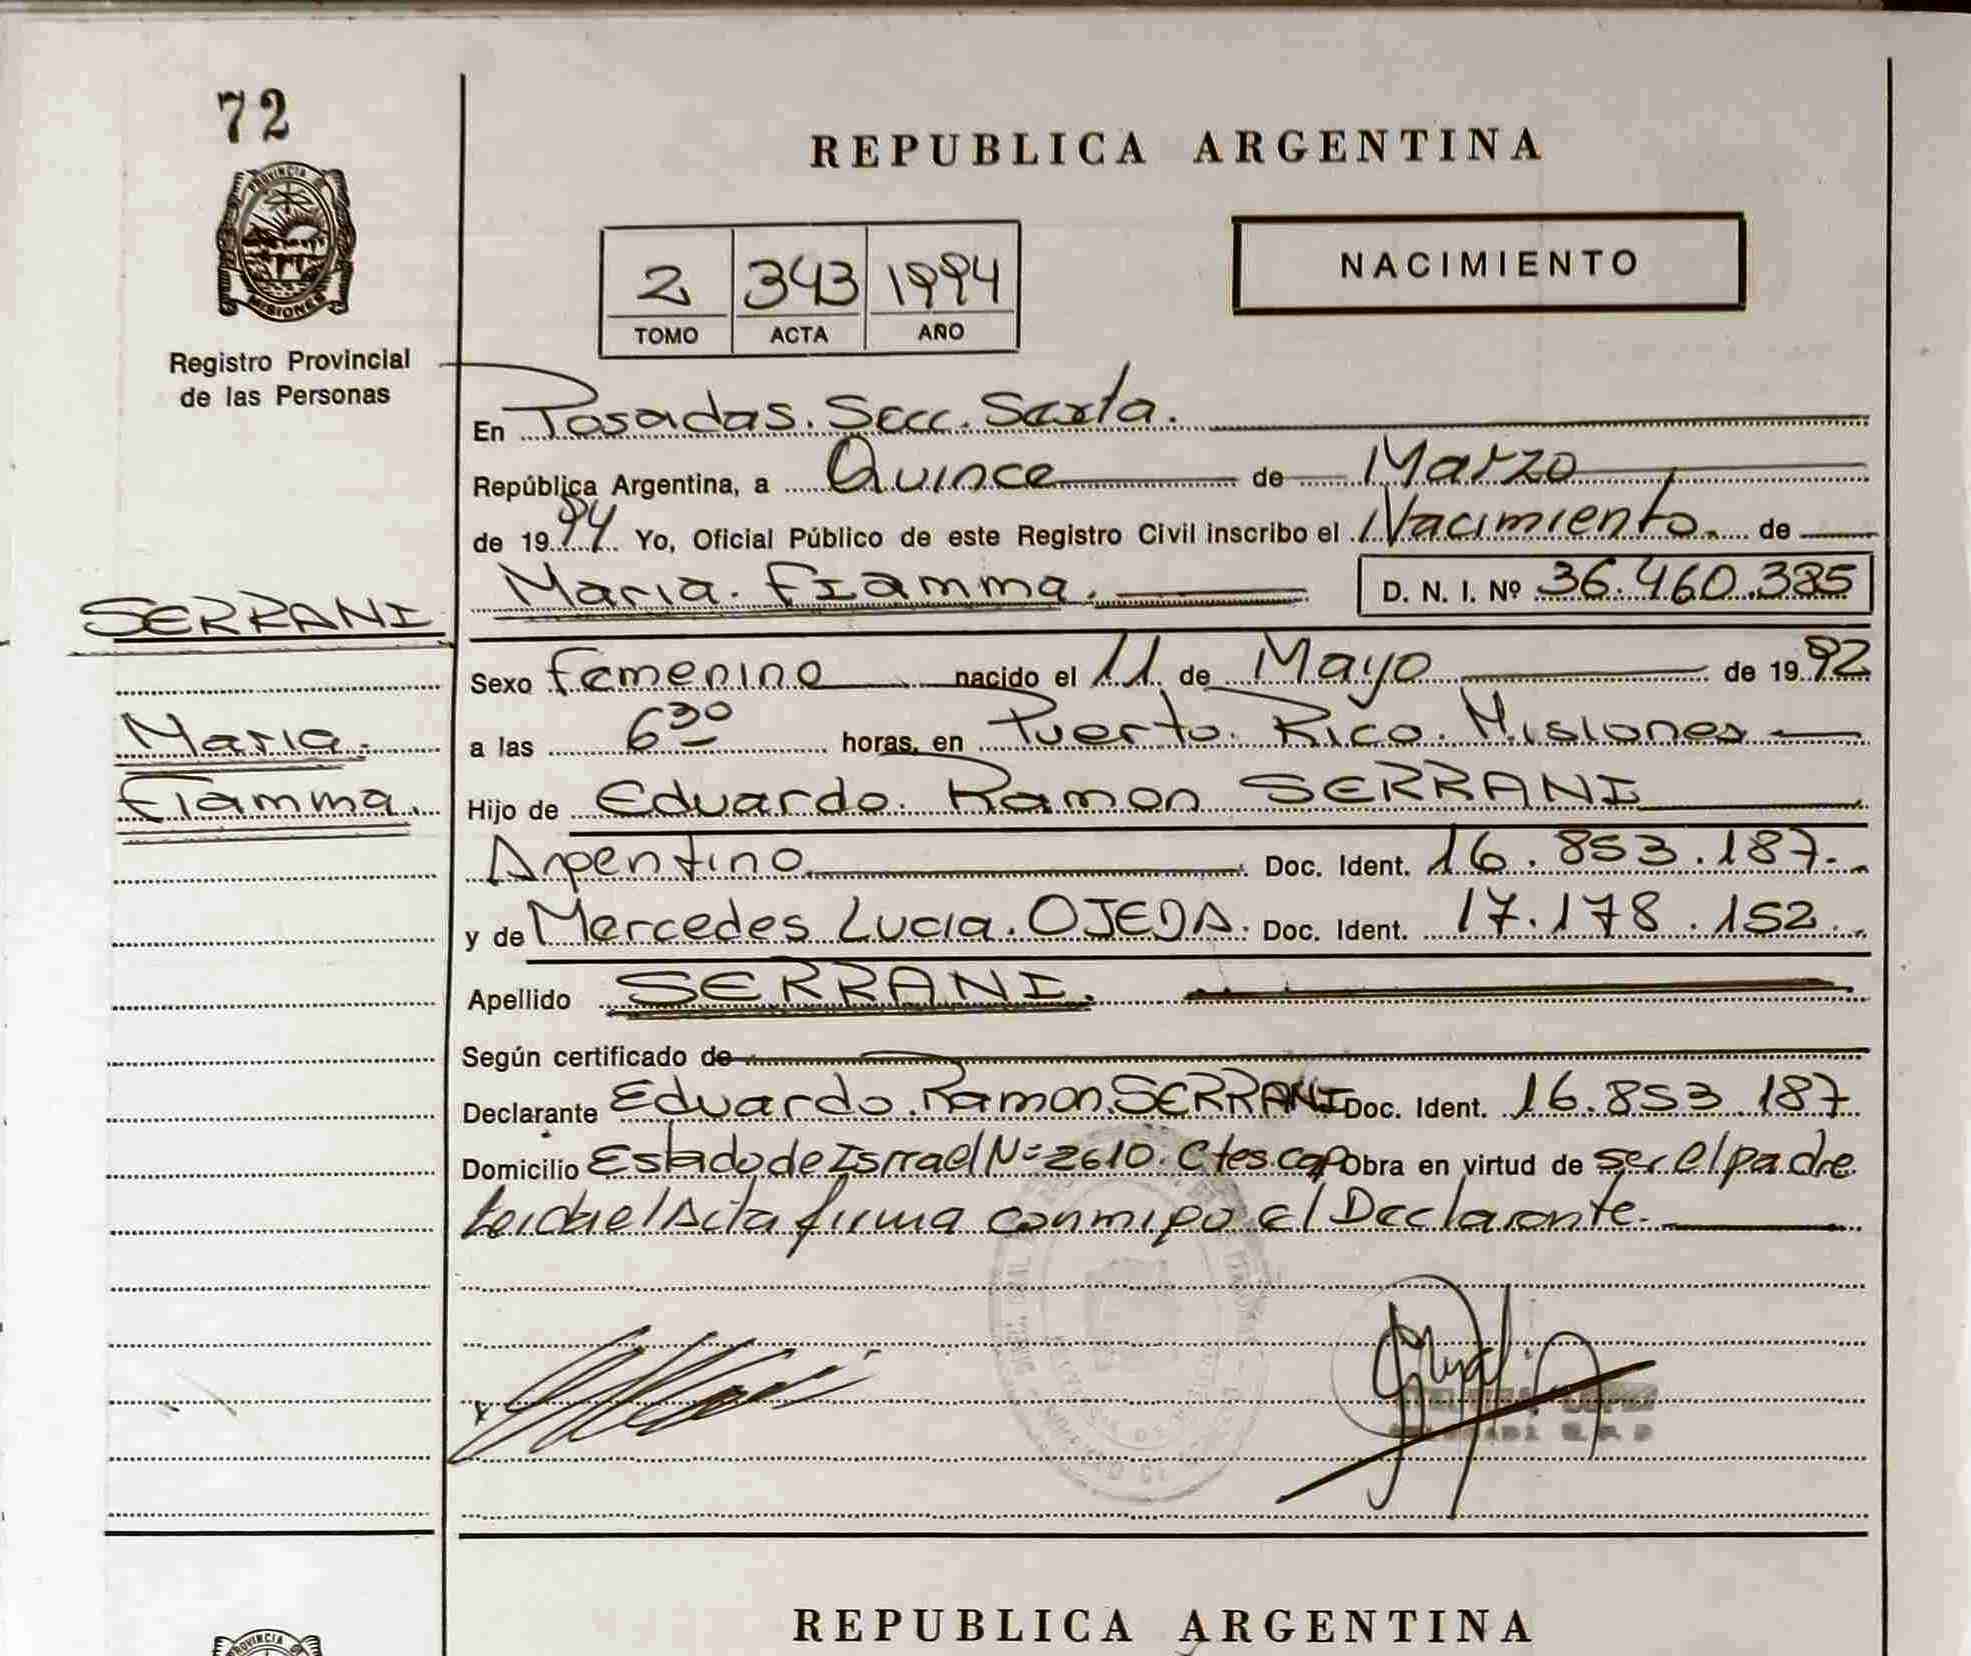 72
PROVINCIA DE
MISIONES
Registro Provincial
de las Personas
REPUBLICA ARGENTINA
2 343 1994
TOMO ACTA AÑO
NACIMIENTO
En Posadas. Secc. Sexta.
República Argentina, a Quince de Marzo
de 1994 Yo, Oficial Público de este Registro Civil inscribo el Nacimiento de
Maria. Fiamma. D. N. I. Nº 36.460.385
SERRANI
Sexo femenino nacido el 11 de Mayo de 1992
Maria.
a las 6 30 horas, en Puerto. Rico. Misiones
Fiamma.
Hijo de Eduardo. Ramon SERRANI
Argentino Doc. Ident. 16.853.187.
y de Mercedes Lucia. OJEDA. Doc. Ident. 17.178.152.
Apellido SERRANI.
Según certificado de
Declarante Eduardo. Ramon. SERRANI Doc. Ident. 16.853.187
Domicilio Estado de Israel Nº 2610. Ctes. cap Obra en virtud de ser el padre
Leida el Acta firma conmigo el Declarante.
LOPEZ
REPUBLICA ARGENTINA
PROVINCIA